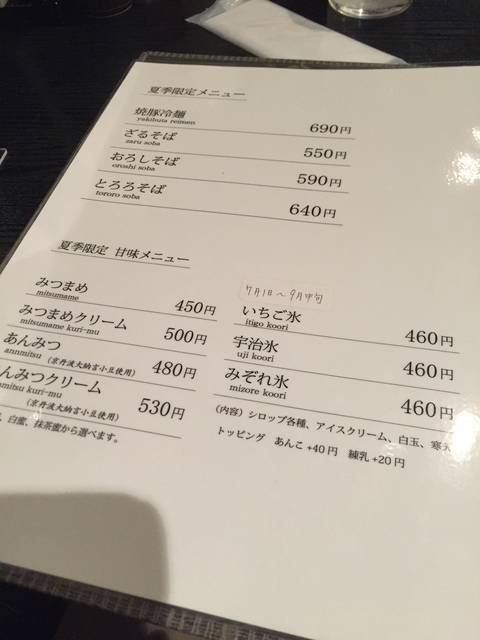 夏季限定メニュー
焼豚冷麺 690円
yakibuta reimen
ざるそば 550円
zaru soba
おろしそば 590円
oroshi soba
とろろそば 640円
tororo soba
夏季限定 甘味メニュー
みつまめ 450円
mitsumame
みつまめクリーム 500円
mitsumame kuri-mu
あんみつ 480円
annmitsu (京丹波大納言小豆使用)
んみつクリーム 530円
mitsu kuri-mu
(京丹波大納言小豆使用)
、白蜜、抹茶蜜から選べます。
7月1日〜9月中旬
いちご氷 460円
itigo koori
宇治氷 460円
uji koori
みぞれ氷 460円
mizore koori
(内容) シロップ各種、アイスクリーム、白玉、寒天
トッピング あんこ +40円 練乳 +20円